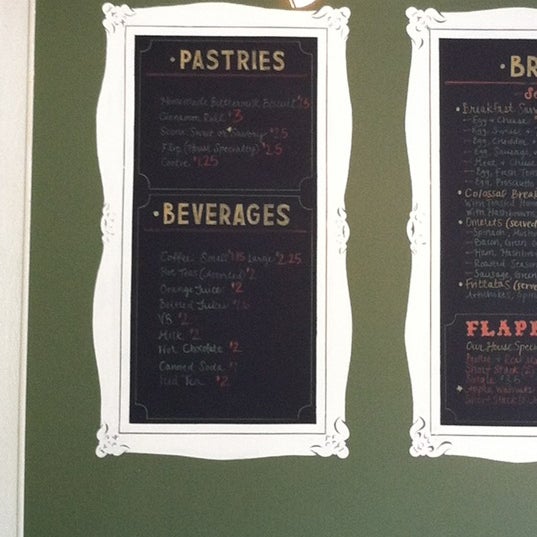 ·PASTRIES
Homemade Buttermilk Biscuit
Cinnamon Roll $3
Scone Sweet or Savory $2.5
Flip (House Specialty) $2.5
Cookie $1.25
·BEVERAGES
Coffee Small Large $2.25
Hot Teas (Assorted) $2
Orange Juice $2
Bottled Juice
V8 $2
Milk $2
Hot Chocolate $2
Canned Soda
Iced Tea $2
·BR
·Breakfast San
-Egg + Cheese
-Egg,
-Egg, Cheddar +
-Egg, Sausage,
-Meat + Cheese
-Egg, Fresh Tom
-Egg, Prosciutto
·Colossal Brea
With Toasted Hom
With Hashbrowns
·Omelets (served
-Spinach, Mush
-Bacon, Green O
-Ham, Hashbro
-Roasted Seaso
-Sausage, Green
·Frittatas (serve
Artichokes, Spin
FLAP
Our House Speci
Short Stack (2)
Single $3.5